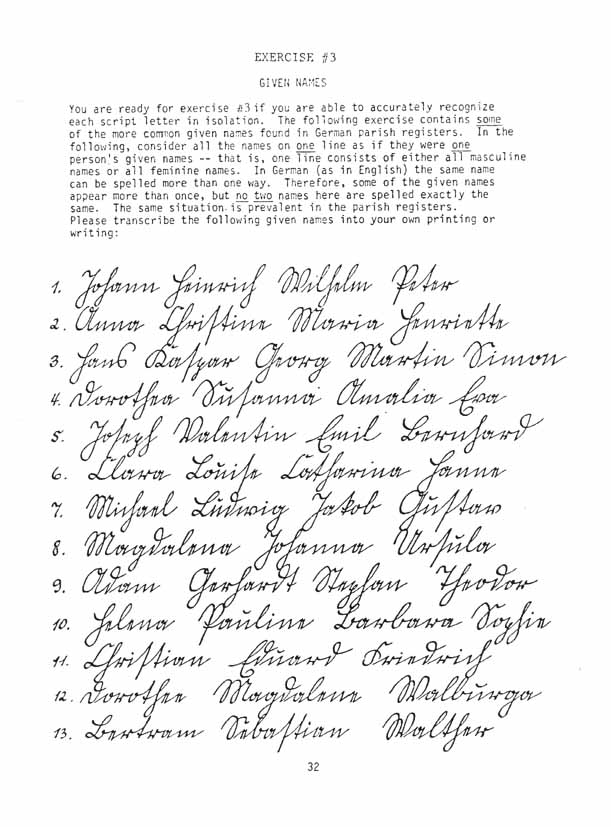 EXERCISE #3
GIVEN NAMES
You are ready for exercise #3 if you are able to accurately recognize
each script letter in isolation. The following exercise contains some
of the more common given names found in German parish registers. In the
following, consider all the names on one line as if they were one
person's given names -- that is, one line consists of either all masculine
names or all feminine names. In German (as in English) the same name
can be spelled more than one way. Therefore, some of the given names
appear more than once, but no two names here are spelled exactly the
same. The same situation is prevalent in the parish registers.
Please transcribe the following given names into your own printing or
writing:
1. Johann Heinrich Wilhelm Peter
2. Anna Christine Maria Henriette
3. Hans Kaspar Georg Martin Simon
4. Dorothea Susanna Amalia Eva
5. Joseph Valentin Emil Bernhard
6. Clara Louise Catharina Hanne
7. Michael Ludwig Jakob Gustav
8. Magdalena Johanna Ursula
9. Adam Gerhardt Stephan Theodor
10. Helena Pauline Barbara Sophie
11. Christian Eduard Friedrich
12. Dorothee Magdalene Walburga
13. Bertram Sebastian Walther
32